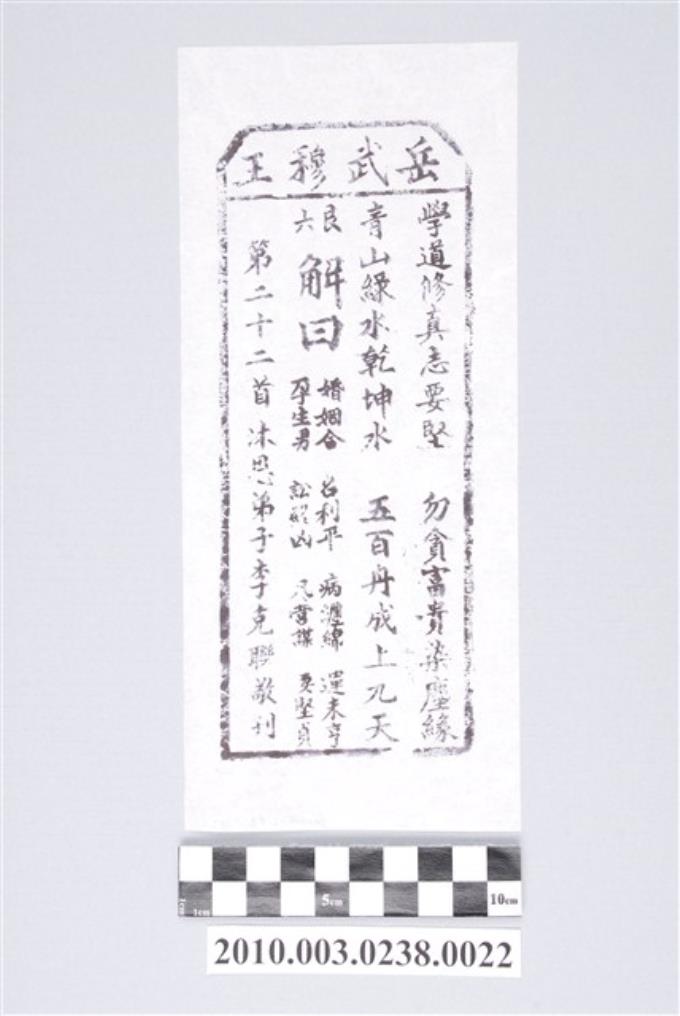 岳武穆王
學道修真志要堅 勿貪富貴染塵緣
青山綠水乾坤水 五百丹成上九天
艮六
解曰
婚姻合 名利平 病瀍綿 運未亨
孕生男 訟終凶 凡營謀 要堅貞
第二十二首 沐恩弟子李克聯敬刊
1cm 1cm 5cm 10cm
2010.003.0238.0022